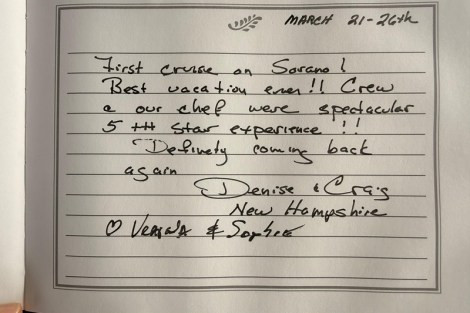 MARCH 21-26th
First cruise on Sorano!
Best vacation ever!! Crew
& our chef were spectacular
5 +++ star experience!!!
Definety coming back
again
Denise & Craig
New Hampshire
♡ & Sophie